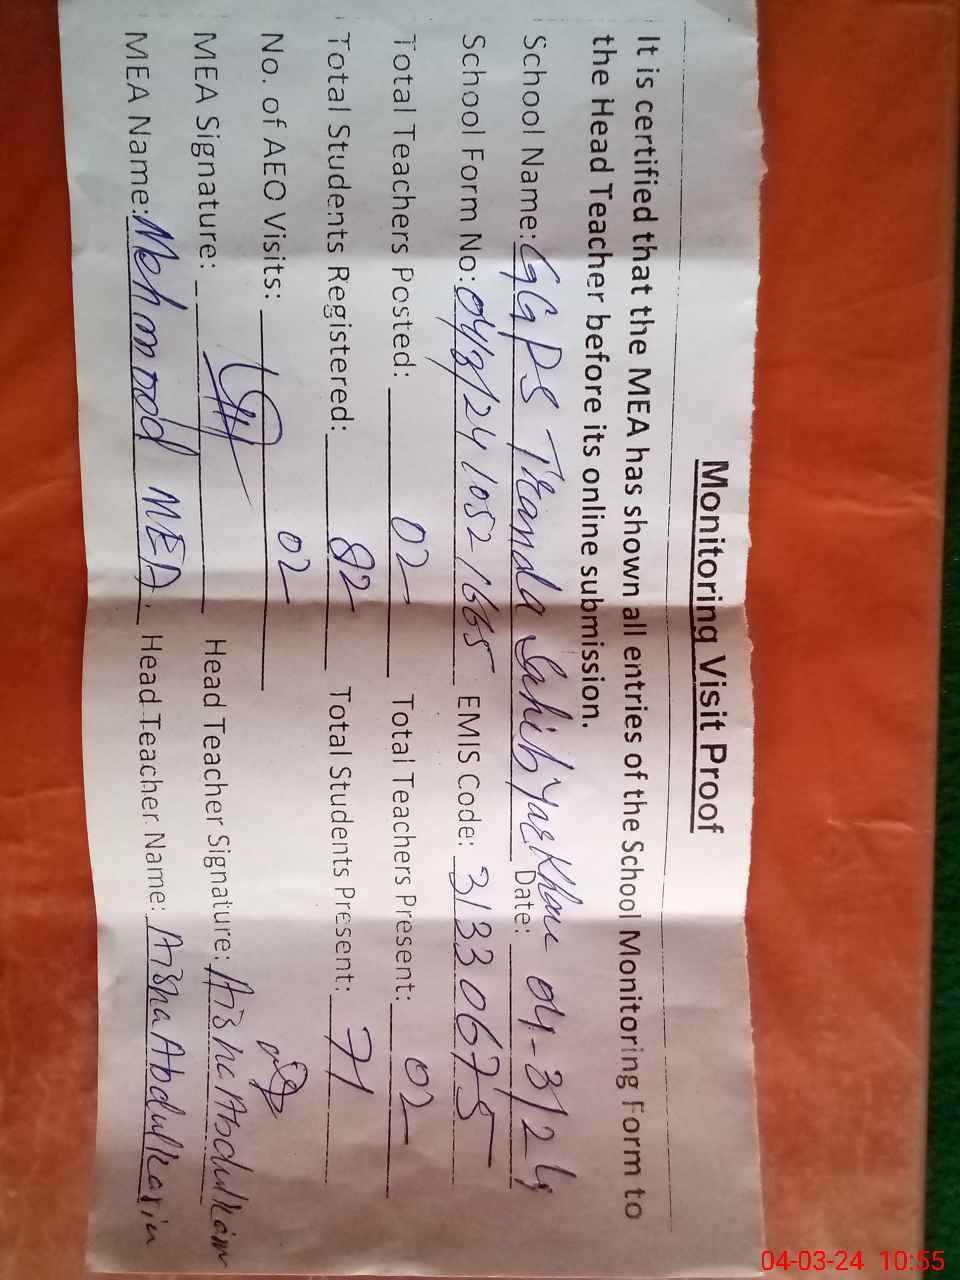 Monitoring Visit Proof
It is certified that the MEA has shown all entries of the School Monitoring Form to
the Head Teacher before its online submission.
School Name: GGPS Tranda Sahib Yar Khan Date: 04-3/24
School Form No: 04/3/24 1052 1665 EMIS Code: 31330675
Total Teachers Posted: 02 Total Teachers Present: 02
Total Students Registered: 82 Total Students Present: 71
No. of AEO Visits: 02
MEA Signature: Head Teacher Signature: Aisha Abdulkarim
MEA Name: Mehmood MEA. Head Teacher Name: Aisha Abdulkarim
04-03-24 10:55